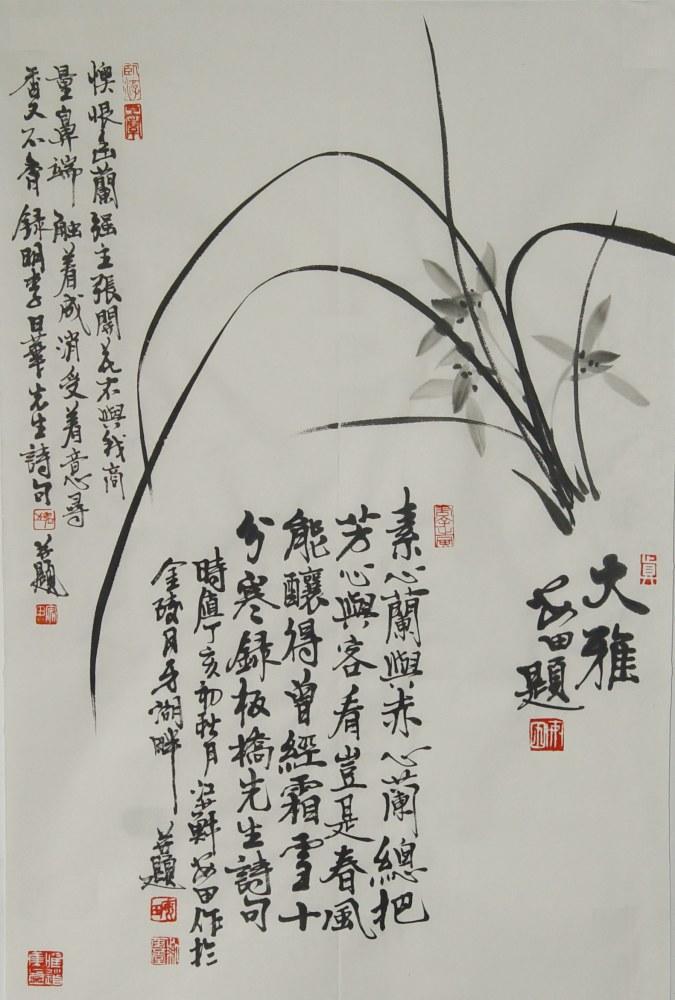 大雅
安田題
素心蘭與赤心蘭總把
芳心與客看豈是春風
能釀得曾經霜雪十
分寒錄板橋先生詩句
時值丁亥初秋月
安田作於
金陵月牙湖畔
并題
懊恨幽蘭强主張開花不與我商
量鼻端觸着成消受着意尋
香又不香 録明李日華先生詩句
并題